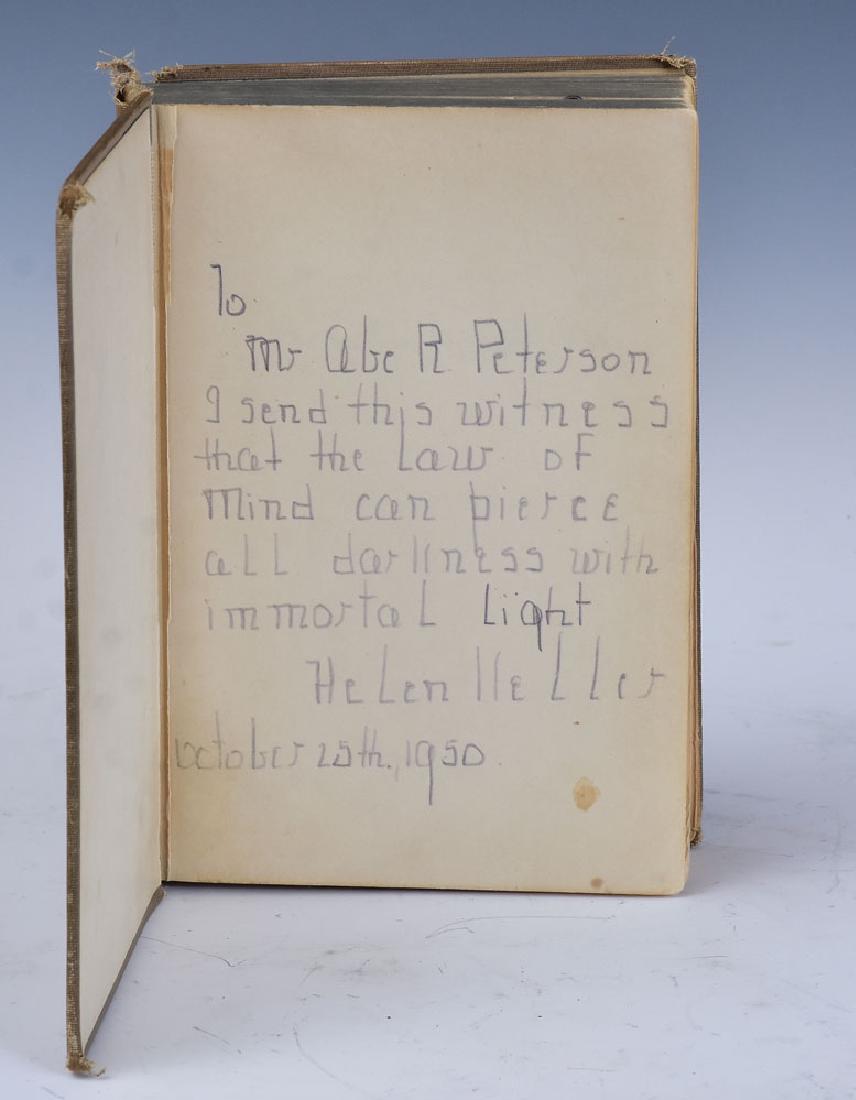 To
Mr Abe R Peterson
I send this witness
that the law of
Mind can pierce
all darkness with
immortal light
Helen Keller
October 25th., 1950.